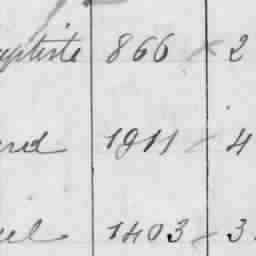 aptiste 866 2
ard 1911 4
uel 1403 3